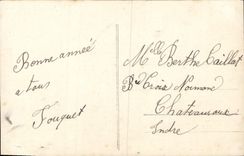 Bonne année
a tous
Fouquet
Melle Berthe Caillat
Bd Croix Normand
Chateauroux
Indre